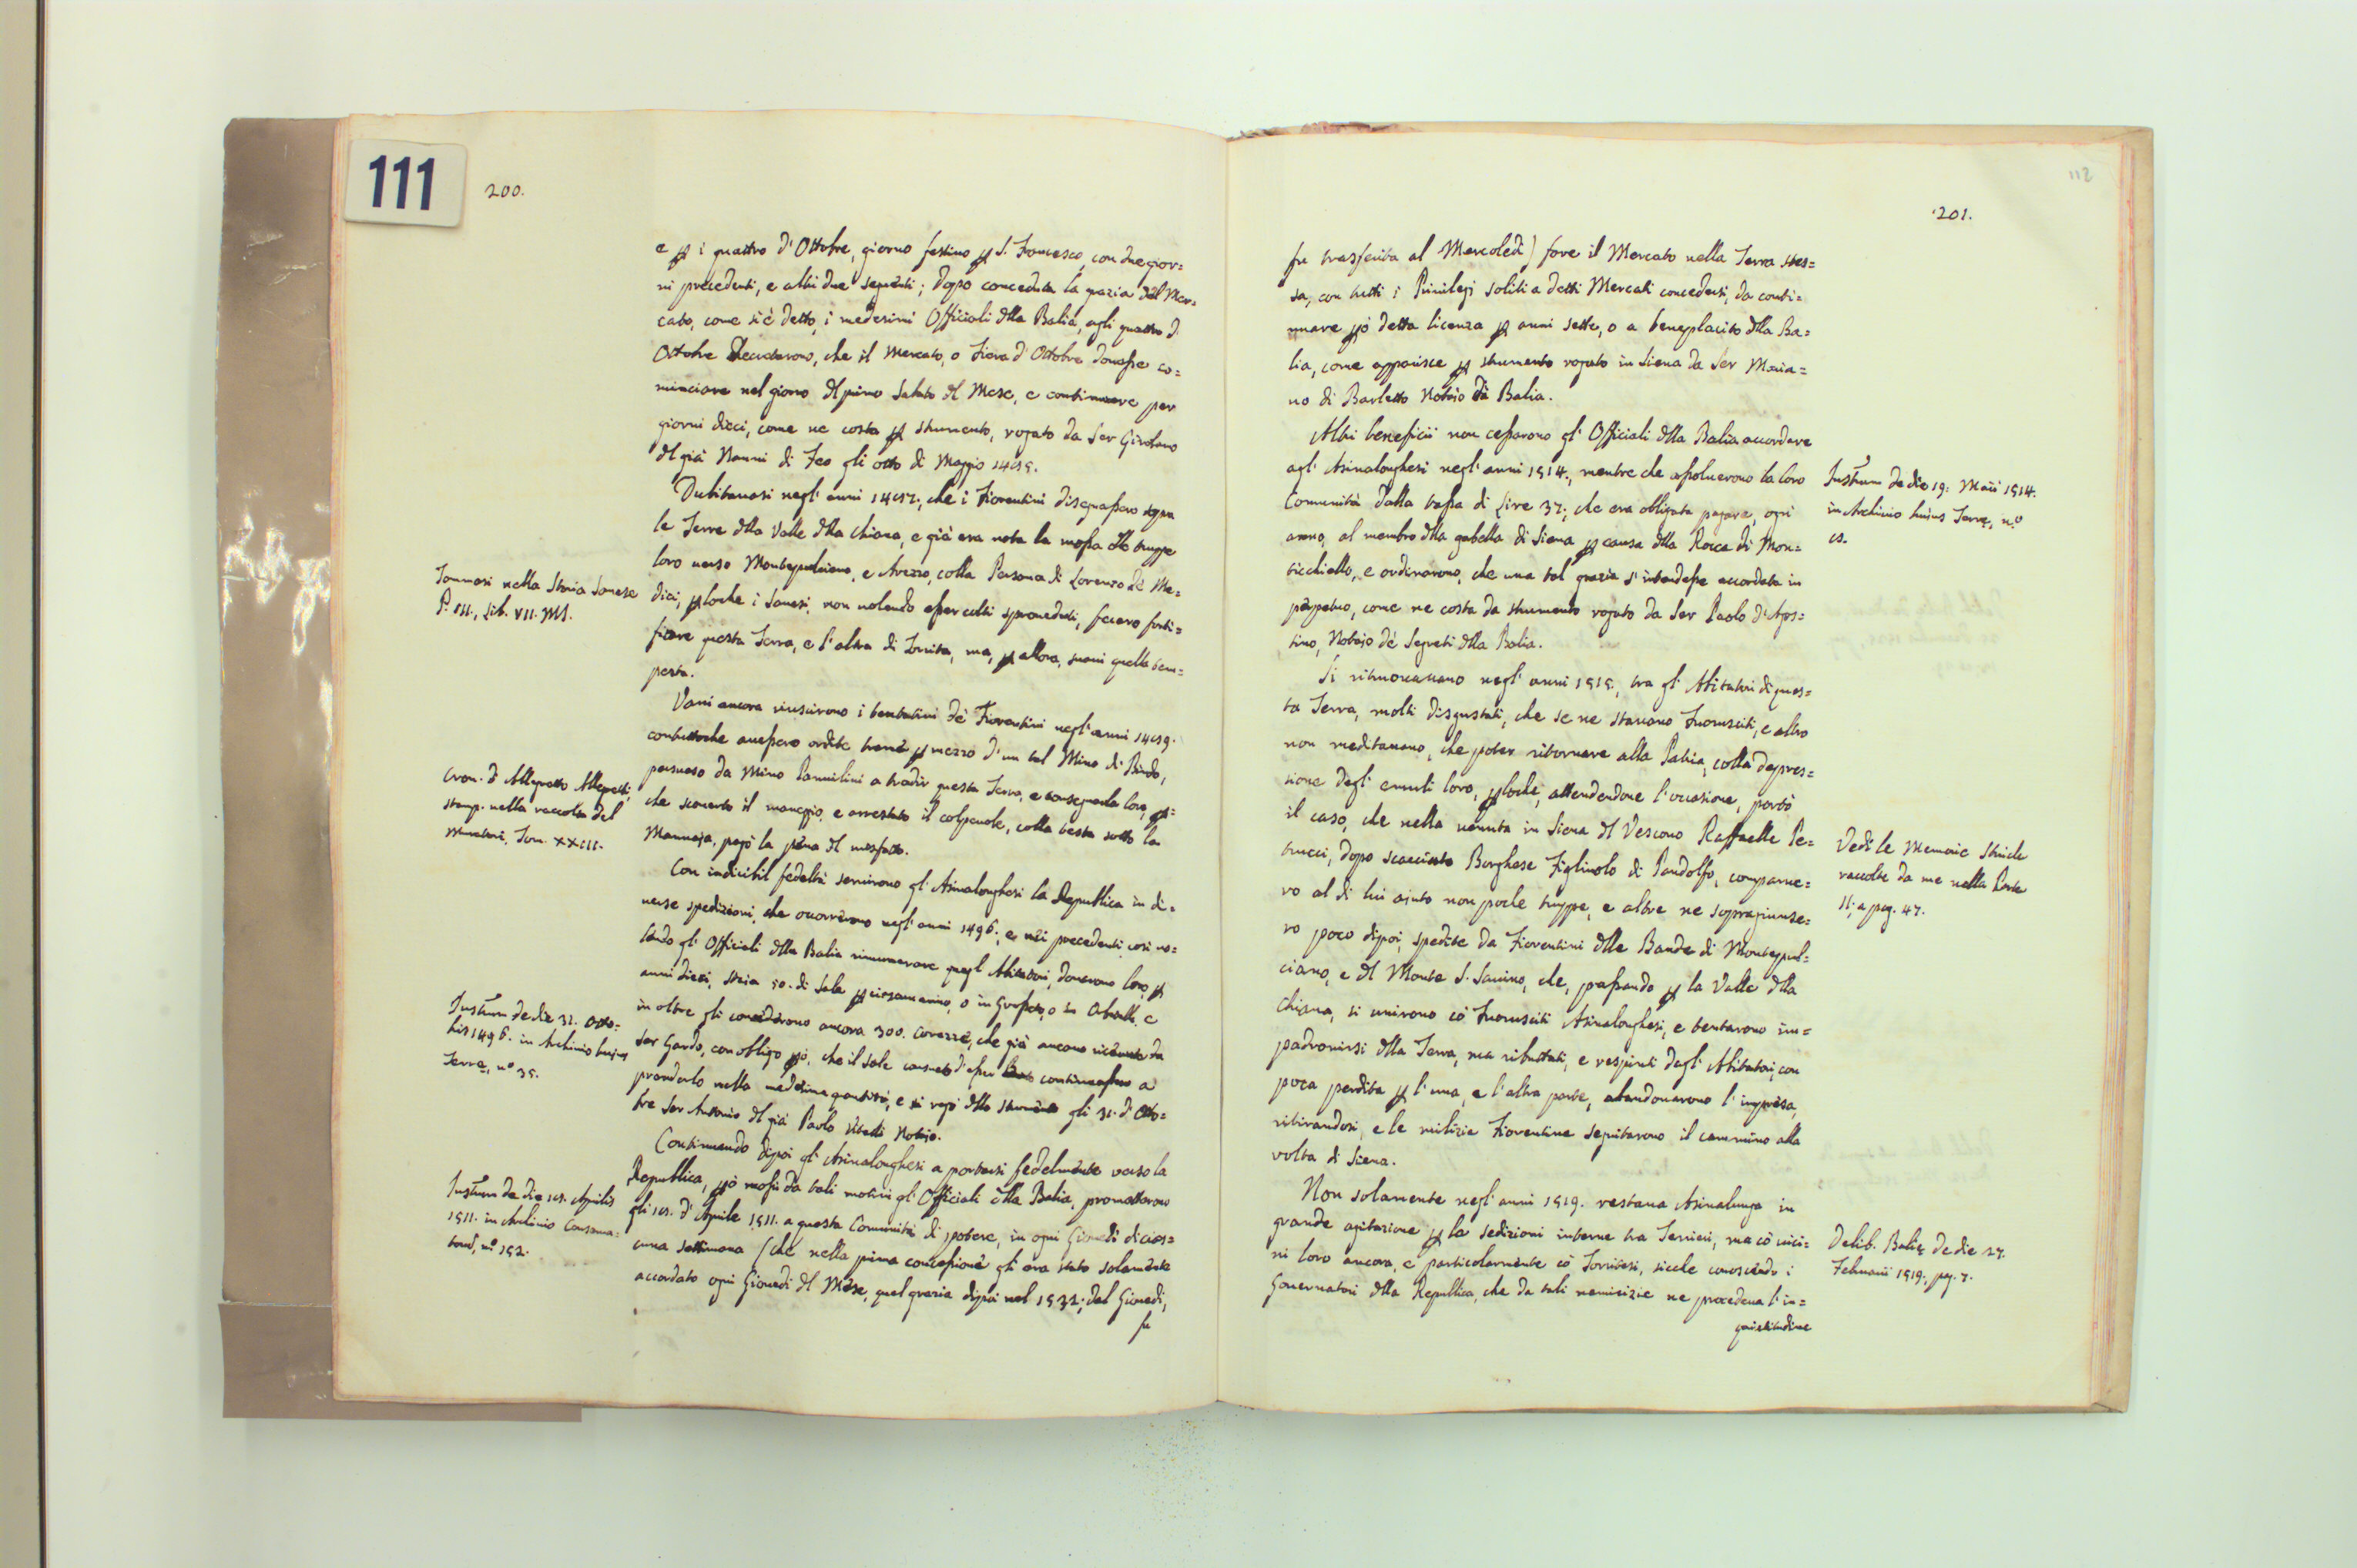 111
200.
e p i quattro d'Ottobre, giorno festivo p S. Francesco, con due gior=
ni precedenti, e altri due seguenti; Dopo conceduta la grazia del Mer=
cato, come si è detto, i medesimi Officiali dlla Balia, agli quattro d
Ottobre decretarono, che il Mercato, o Fiera d'Ottobre dovesse co=
minciare nel giorno dl primo Sabato dl Mese, e continuare per
giorni dieci, come ne costa p strumento, rogato da Ser Girolamo
dl già Nanni di Feo gli otto di Maggio
Dubitavasi negl'anni che i Fiorentini disegnassero sopra
le Terre dlla Valle dlla Chiana, e già era nota la mossa dlle truppe
loro verso Montepulciano, e Arezzo, colla Persona di Lorenzo de Me=
dici, ploche i Sanesi, non volendo esser colti sproveduti, fecero forti=
ficare questa Terra, e l'altra di Torrita, ma, p allora, svanì quella tem=
pesta.
Tommasi nella Storia Sanese
P. III., Lib. VII. MS.
Vani ancora riuscirono i tentativi de Fiorentini negl'anni
contuttoche avessero ordite trame p mezzo d'un tal Mino di Bindo,
persuaso da Mino Pannilini a tradir questa Terra, e consegnarla loro,
che scoverto il maneggio, e arrestato il colpevole, colla testa sotto la
Mannaja, pagò la pena dl misfatto.
Cron. d'Allegretto Allegretti,
stamp. nella raccolta del
Muratori, Tom. XXIII.
Con indicibil fedeltà servirono gl'Asinalonghesi la Republica in di=
verse spedizioni, che occorrerono negl'anni 1496., e nei precedenti, così vo=
lendo gl'Officiali dlla Balia rimunerare quegl'Abitatori, donarono loro, p
anni dieci, staia 50. di Sale p ciascun anno, o in Grosseto, o in e
in oltre gli concederono ancora 300. Corazze, che già avevano ricevute da
Ser Gardo, con obligo pò, che il Sale consueto d'esser continuassero a
prenderlo nella medesima quantità, e si rogò dllo strumento gli 31. d'Otto=
bre Ser Antonio dl già Paolo Notajo.
Instrum de die 31. Otto=
bris 1496. in Archivio hujus
Terrę, n.º 35.
Continuando dipoi gl'Asinalonghesi a portarsi fedelmente verso la
Republica, pò mossi da tali motivi gl'Officiali dlla Balia, promossero
gli d'Aprile 1511. a questa Comunità di potere, in ogni Giovedì di cias=
cuna settimana (che nella prima concessione gli era stato solamente
accordato ogni Giovedì dl Mese, qual grazia dipoi nel 1532; dal Giovedì,
fu
Instrum de die Aprilis
1511. in Archivio
n.º 152.
112
201.
fu trasferita al Mercoledì) fare il Mercato nella Terra stes=
sa, con tutti i Privilegi soliti a detti Mercati concedersi, da conti=
nuare pò detta licenza p anni sette, o a beneplacito dlla Ba=
lia, come apparisce p strumento rogato in Siena da Ser Maria=
no di Barletto Notajo di Balia.
Altri beneficii non cessarono gl'Officiali dlla Balia accordare
agl'Asinalonghesi negl'anni 1514., mentre che assolverono la loro
Comunità dalla tassa di Lire 37., che era obligata pagare, ogni
anno, al membro dlla gabella di Siena p causa dlla Rocca di Mon=
ticchiello, e ordinarono, che una tal grazia s'intendesse accordata in
perpetuo, come ne costa da strumento rogato da Ser Paolo d'Agos=
tino, Notajo de Segreti dlla Balia.
Instrum de die 19. Maii 1514.
in Archivio hujus Terrę, n.º
Si ritrovavano negl'anni tra gl'Abitatori di ques=
ta Terra, molti disgustati, che se ne stavano Fuorusciti, e altro
non meditavano, che poter ritornare alla Patria, colla depres=
sione degl'emuli loro, ploche, attendendone l'occasione, portò
il caso, che nella venuta in Siena dl Vescovo Raffaelle Pe=
trucci, dopo scacciato Borghese Figliuolo di Pandolfo, comparve=
ro al di lui ajuto non poche truppe, e altre ne sopragiunse=
ro poco dipoi, spedite da Fiorentini dlle Bande di Montepul=
ciano, e dl Monte S. Savino, che, passando p la Valle dlla
Chiana, si unirono cò Fuorusciti Asinalonghesi, e tentarono im=
padronirsi dlla Terra, ma ributtati, e respinti dagl'Abitatori, con
poca perdita p l'una, e l'altra parte, abandonarono l'impresa,
ritirandosi, e le milizie Fiorentine seguitarono il cammino alla
volta di Siena.
Vedi le Memorie Storiche
raccolte da me nella Parte
II., a pag. 47.
Non solamente negl'anni 1519. restava Asinalunga in
grande agitazione p le sedizioni interne tra Terrieri, ma cò vici=
ni loro ancora, e particolarmente cò Torritesi, sicche conoscendo i
Governatori dlla Republica, che da tali nemicizie ne procedeva l'in=
quietudine
Delib. Balię de die 27.
Februarii 1519., pag. 7.